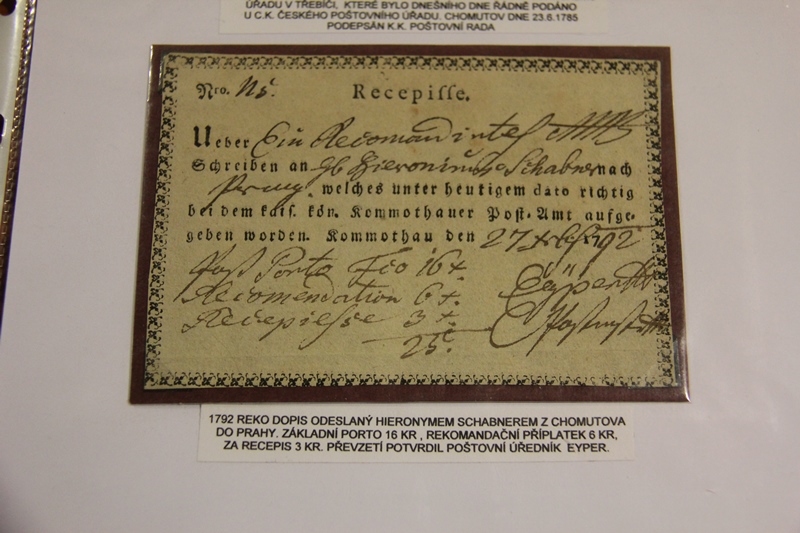 ÚŘADU V TŘEBÍČI, KTERÉ BYLO DNEŠNÍHO DNE ŘÁDNĚ PODÁNO
U C.K. ČESKÉHO POŠTOVNÍHO ÚŘADU. CHOMUTOV DNE 23.6.1785
PODEPSÁN K.K. POŠTOVNÍ RADA
Nro. Recepiſſe.
Ueber Ein Recomandirtes
Schreiben an Hieronimus Schabner nach
Prag. welches unter heutigem dato richtig
bei dem kaiſ. kön. Kommothauer Poſt-Amt aufge-
geben worden. Kommothau den 27 792
Post Porto Fco 16 x.
Recomendation 6 x.
Recepiesse 3 x.
25.
1792 REKO DOPIS ODESLANÝ HIERONYMEM SCHABNEREM Z CHOMUTOVA
DO PRAHY. ZÁKLADNÍ PORTO 16 KR , REKOMANDAČNÍ PŘÍPLATEK 6 KR,
ZA RECEPIS 3 KR. PŘEVZETÍ POTVRDIL POŠTOVNÍ ÚŘEDNÍK EYPER.